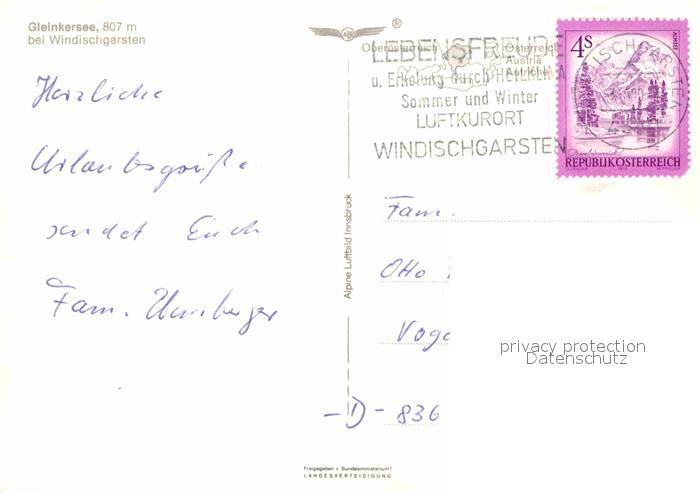 Gleinkersee, 807 m
bei Windischgarsten
®
Oberösterreich
Österreich
Austria
Autriche
LEBENSFREUDE
u. Erholung durch HEILKLIMA
Sommer und Winter
LUFTKURORT
WINDISCHGARSTEN
4S
ALMSEE
REPUBLIK ÖSTERREICH
WINDISCHGARSTEN
Herzliche
Urlaubsgrüße
sendet Euch
Fam.
Alpine Luftbild Innsbruck
Fam.
Otto
Voge
privacy protection
Datenschutz
-D- 836
Freigegeben v. Bundesministerium f.
LANDESVERTEIDIGUNG